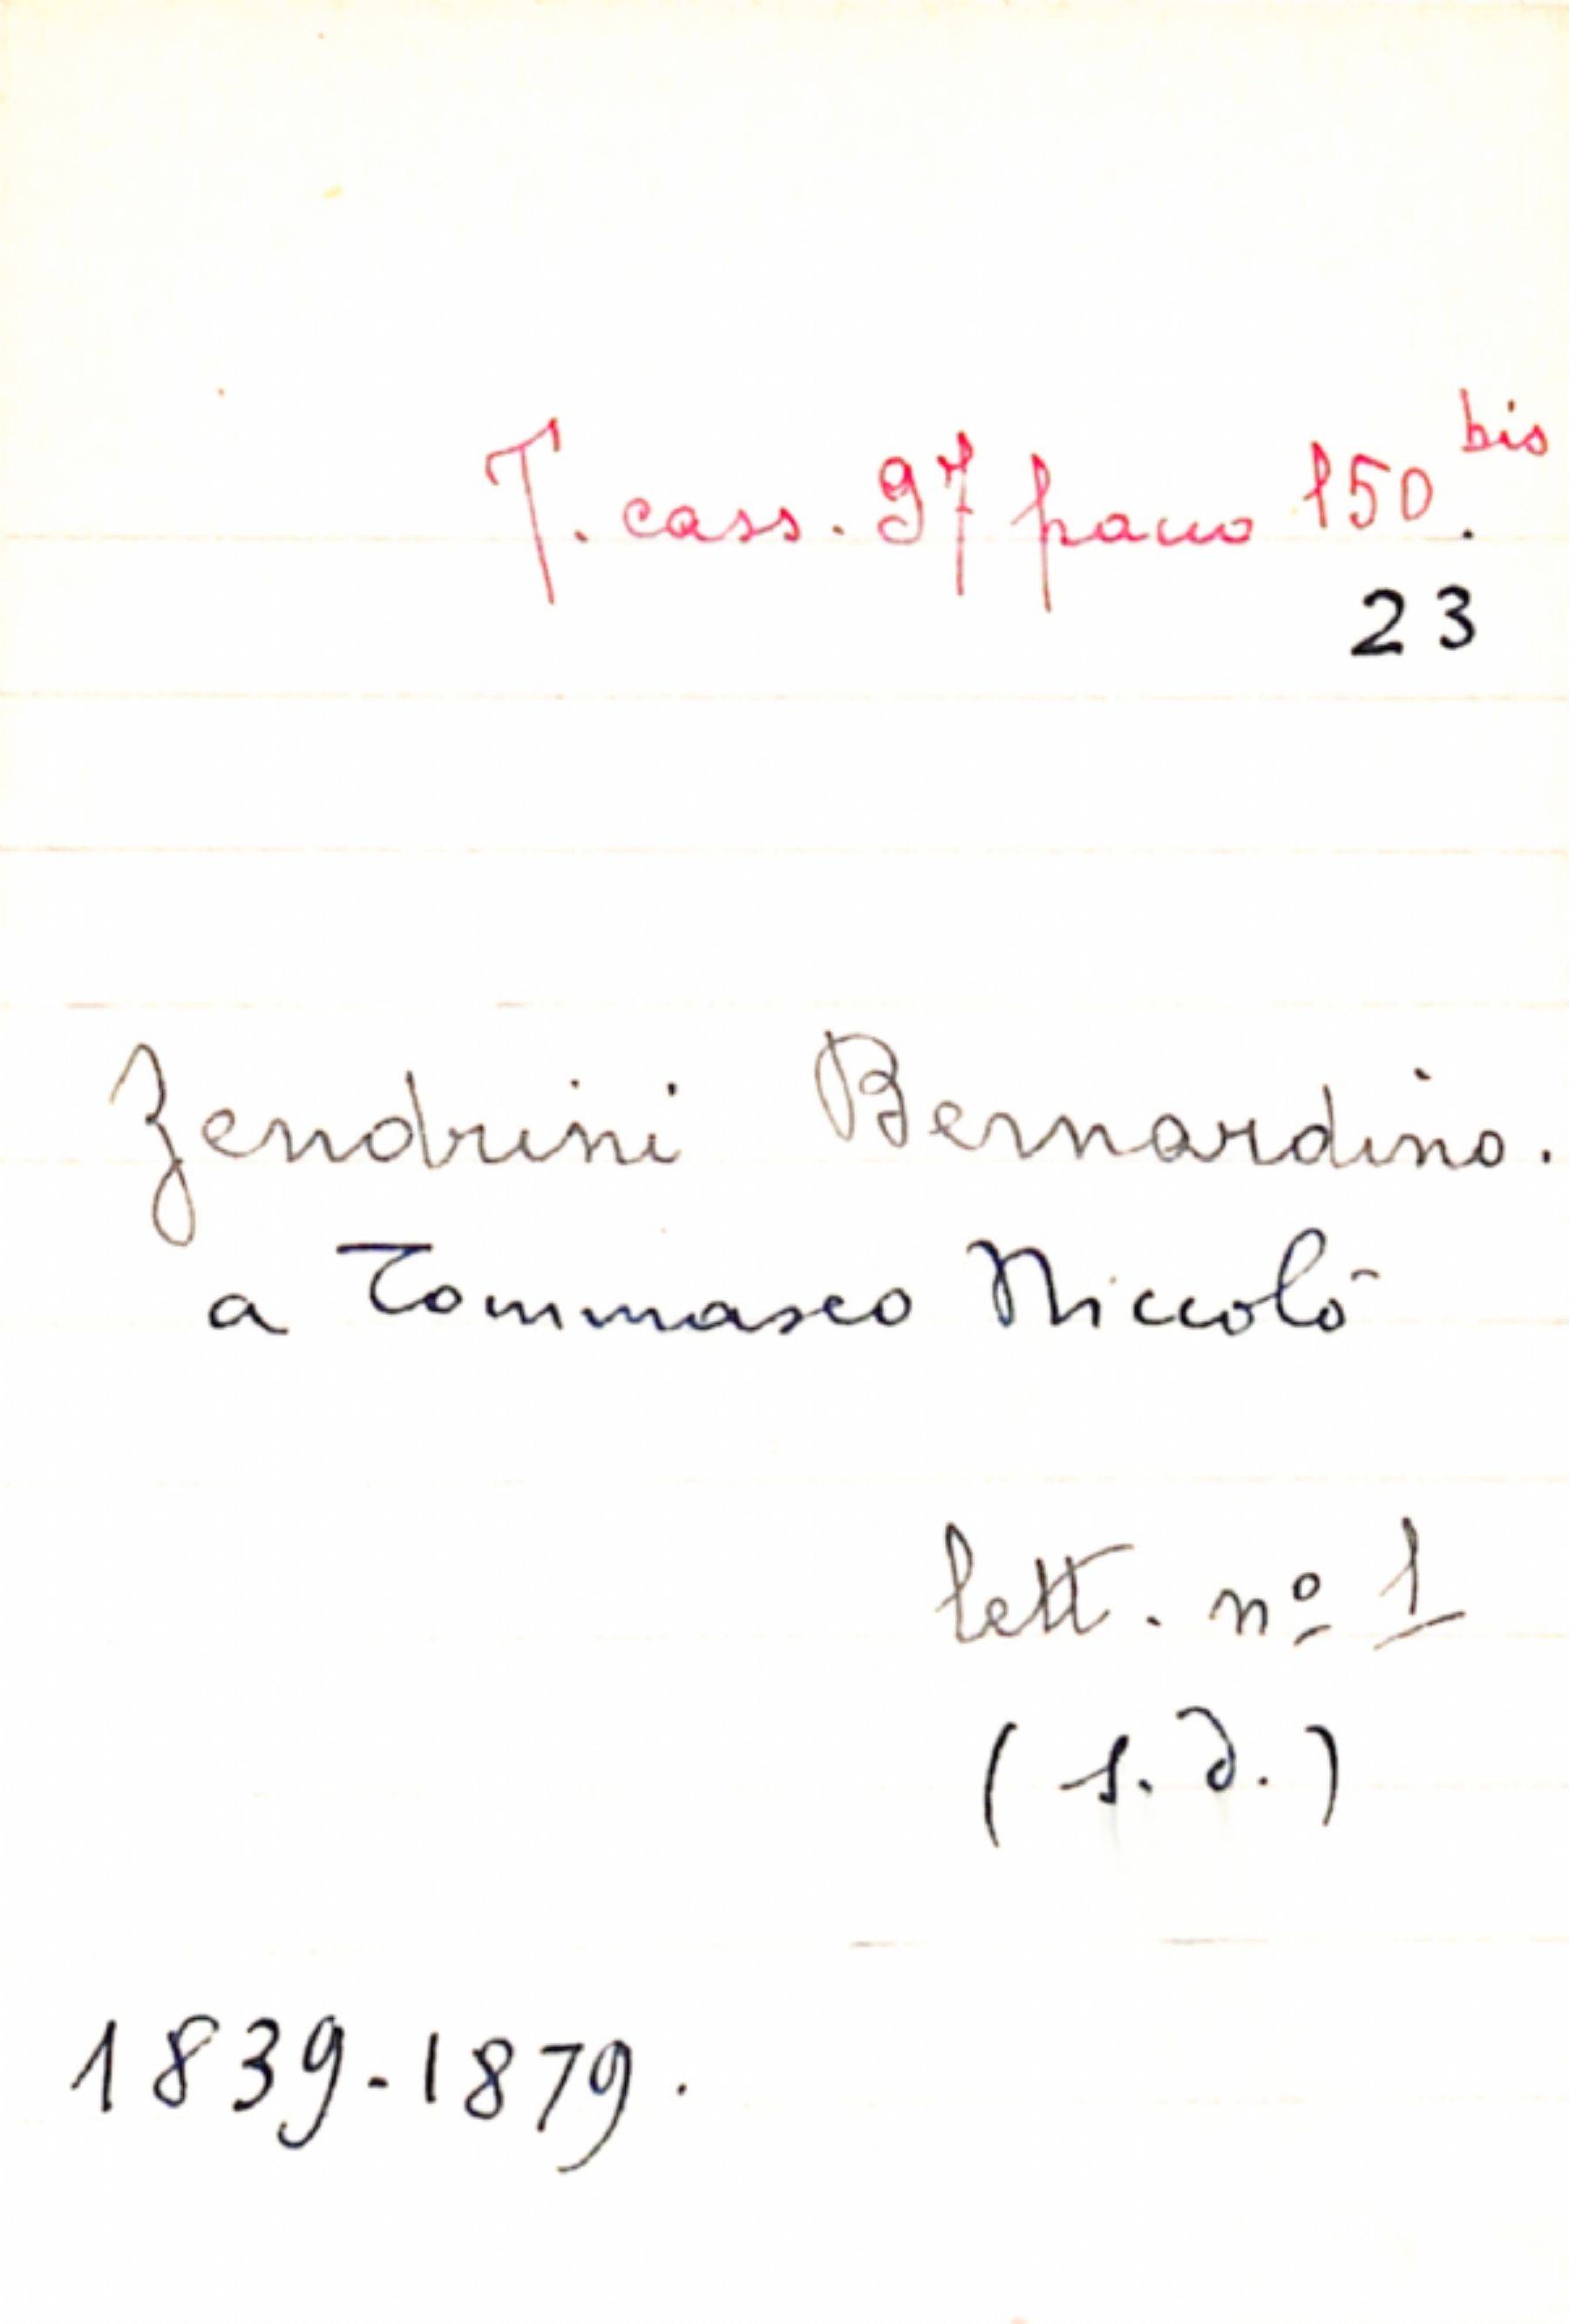 T. cass. 97 pacco 150. bis
23
Zendrini Bernardino.
a Tommaseo Niccolò
lett. nº 1
(s.d.)
1839-1879.